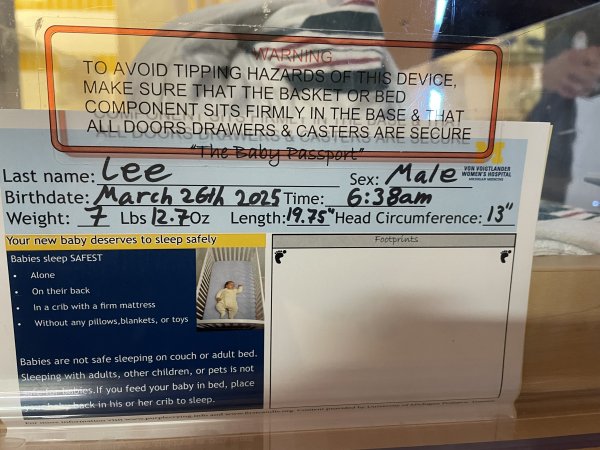 WARNING
TO AVOID TIPPING HAZARDS OF THIS DEVICE,
MAKE SURE THAT THE BASKET OR BED
COMPONENT SITS FIRMLY IN THE BASE & THAT
ALL DOORS DRAWERS & CASTERS ARE SECURE
"The Baby Passport"
Last name: Lee Sex: Male
VON VOIGTLANDER
WOMEN'S HOSPITAL
MICHIGAN MEDICINE
Birthdate: March 26th 2025 Time: 6:38am
Weight: 7 Lbs 12.7 Oz Length: 19.75" Head Circumference: 13"
Your new baby deserves to sleep safely
Babies sleep SAFEST
• Alone
• On their back
• In a crib with a firm mattress
• Without any pillows,blankets, or toys
Babies are not safe sleeping on couch or adult bed.
Sleeping with adults, other children, or pets is not
safe for babies.If you feed your baby in bed, place
your baby back in his or her crib to sleep.
Footprints